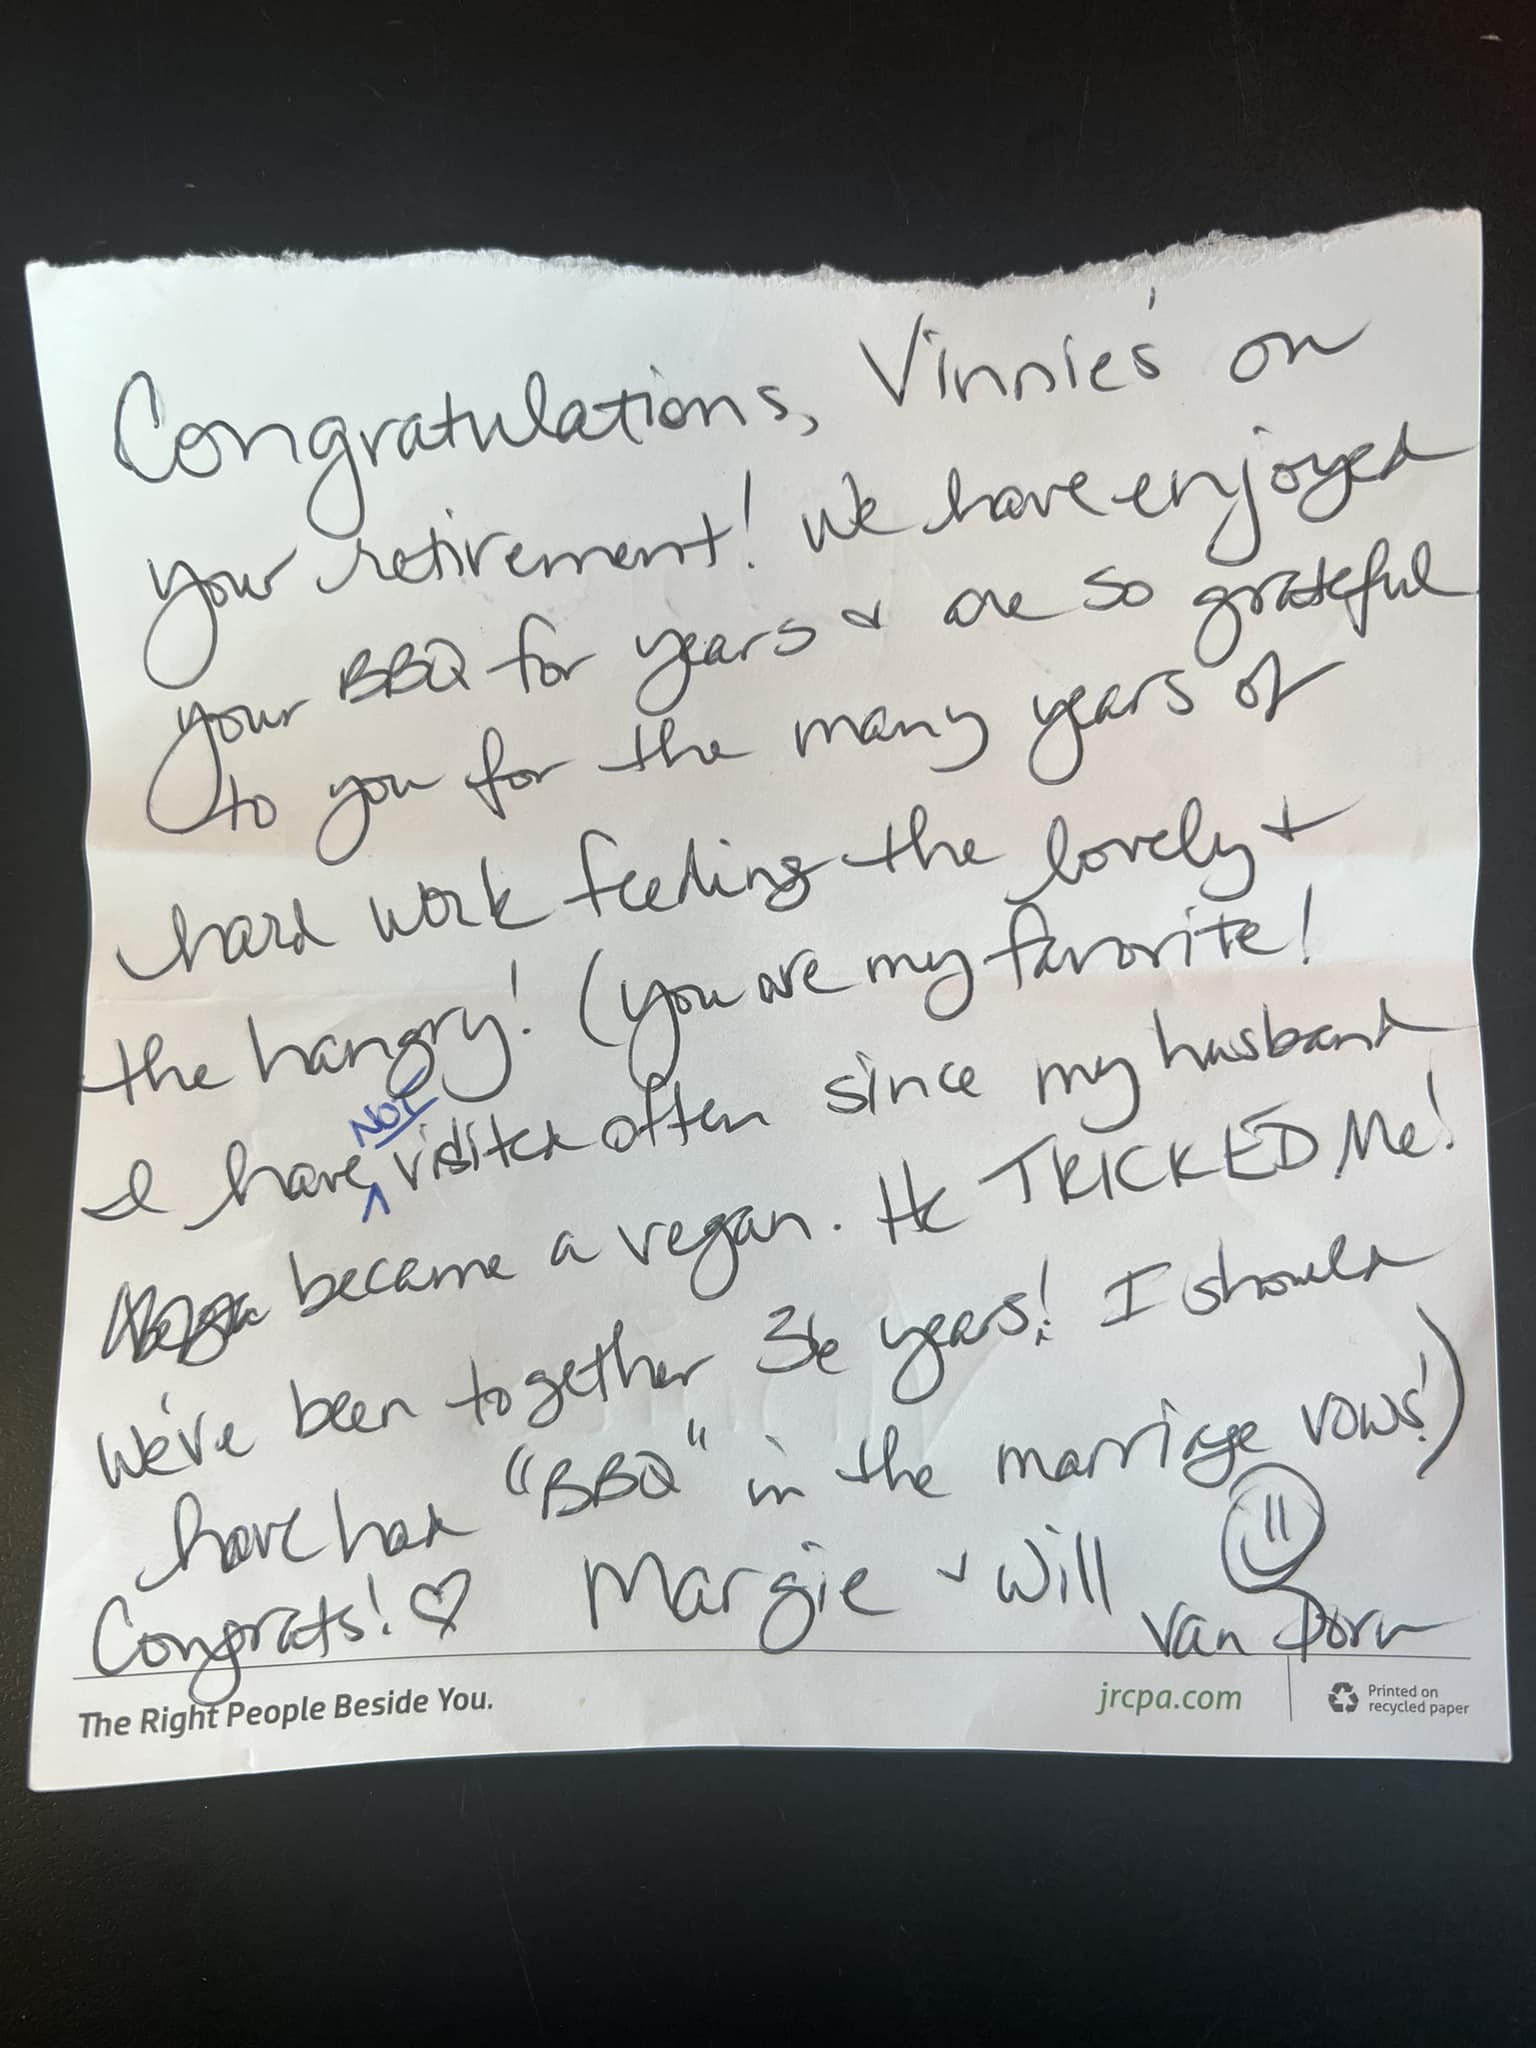 Congratulations, Vinnie's on
your retirement! We have enjoyed
your BBQ for years & are so grateful
to you for the many years of
hard work feeding the lovely &
the hangry! (you are my favorite!
I have NOT visited often since my husband
became a vegan. He TRICKED Me!
We've been together 36 years! I should
have had "BBQ" in the marriage vows!)
Congrats! ♡ Margie & Will
Van Dorn
The Right People Beside You.
jrcpa.com
Printed on
recycled paper